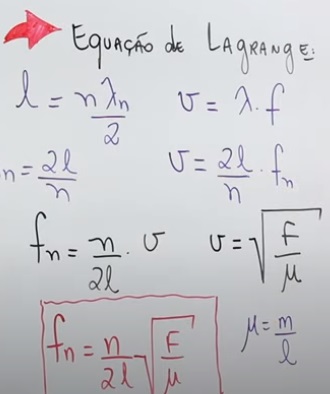 EQUAÇÃO de LAGRANGE:
l = nλn/2    v = λ.f
n = 2l/n    v = 2l/n . fn
fn = n/2l . v    v = √F/μ
fn = n/2l √F/μ    μ = m/l